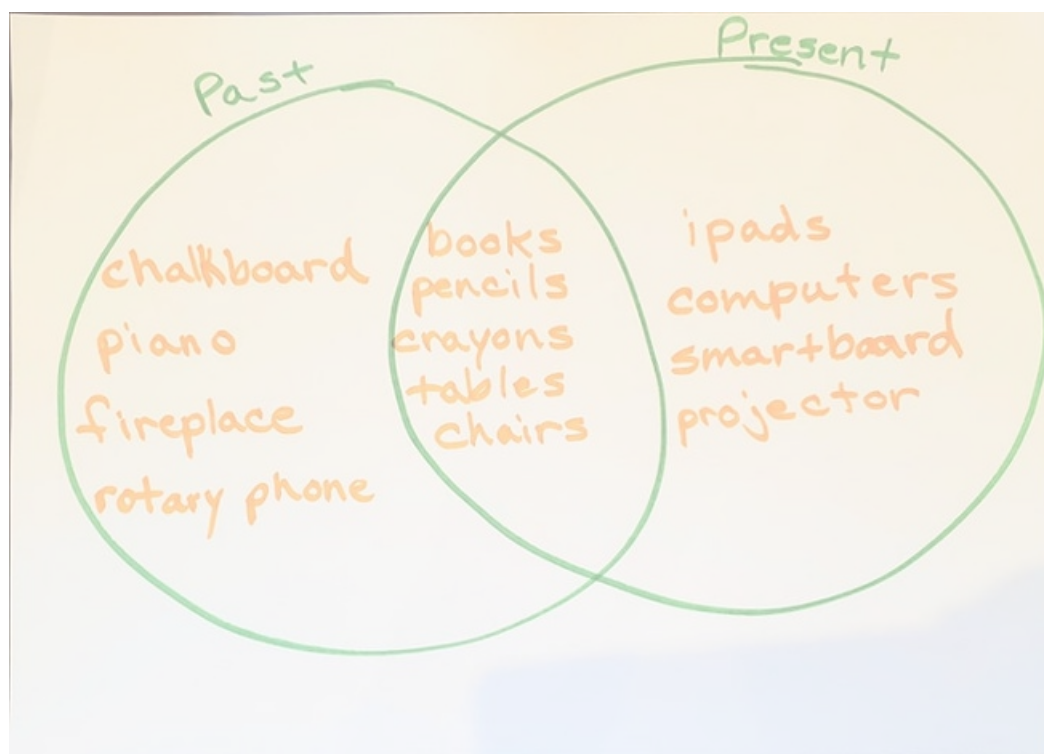 Past
Present
chalkboard
piano
fireplace
rotary phone
books
pencils
crayons
tables
chairs
ipads
computers
smartboard
projector